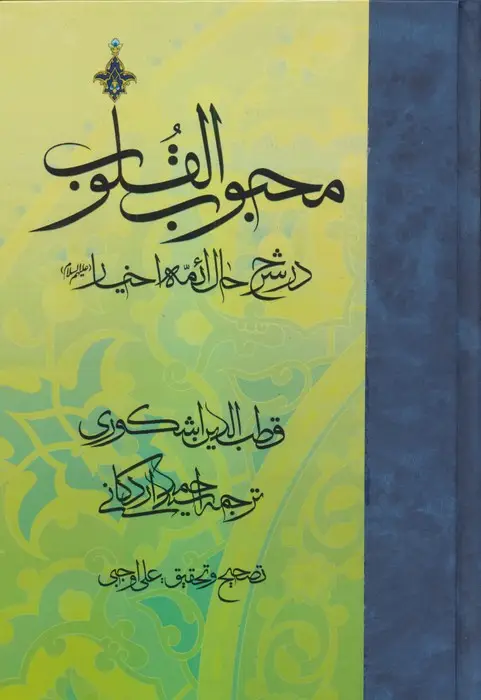 محبوب القلوب
در شرح حال ائمّه اخیار (علیهم السلام)
قطب الدین اشکوری
ترجمه احمد اردکانی
تصحیح و تحقیق: علی اوجبی